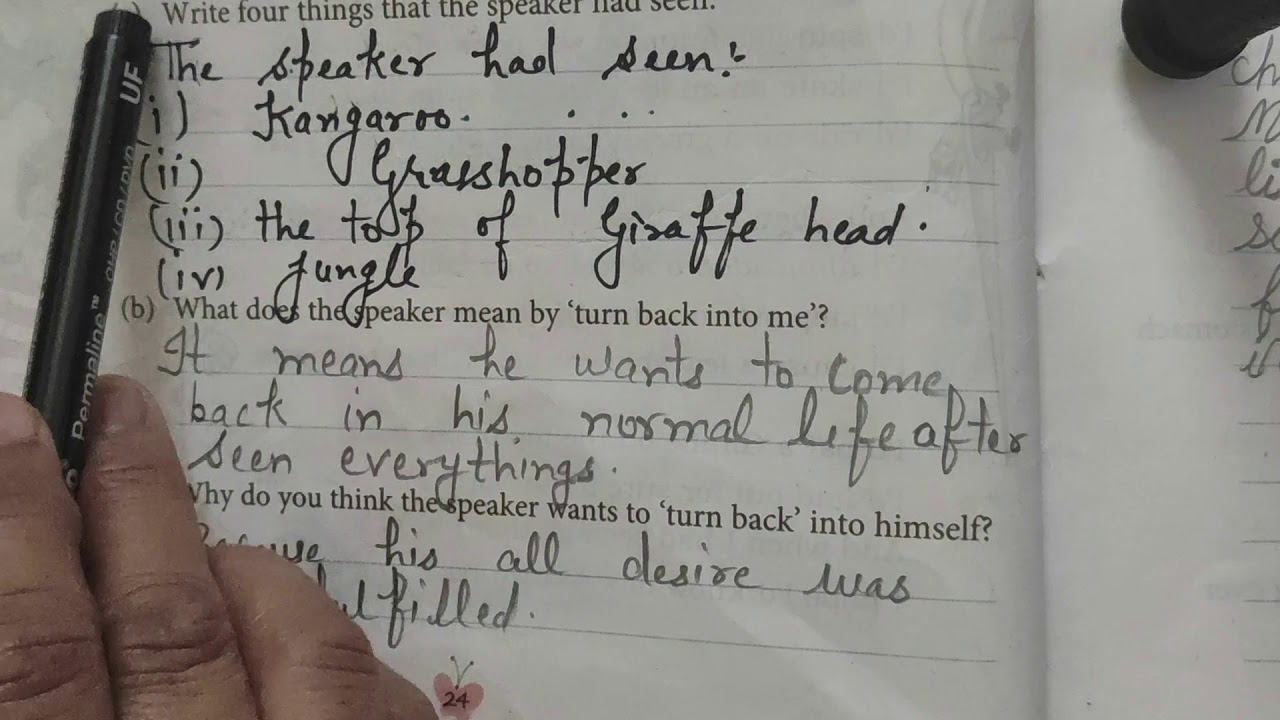 Write four things that the speaker had seen.
The speaker had seen:-
i) Kangaroo.
(ii) Grasshopper
(iii) the top of Giraffe head.
(iv) Jungle
(b) What does the speaker mean by 'turn back into me'?
It means he wants to come
back in his normal life after
seen everythings.
Why do you think the speaker wants to 'turn back' into himself?
his all desire was
filled.
24
UF
Permaline™